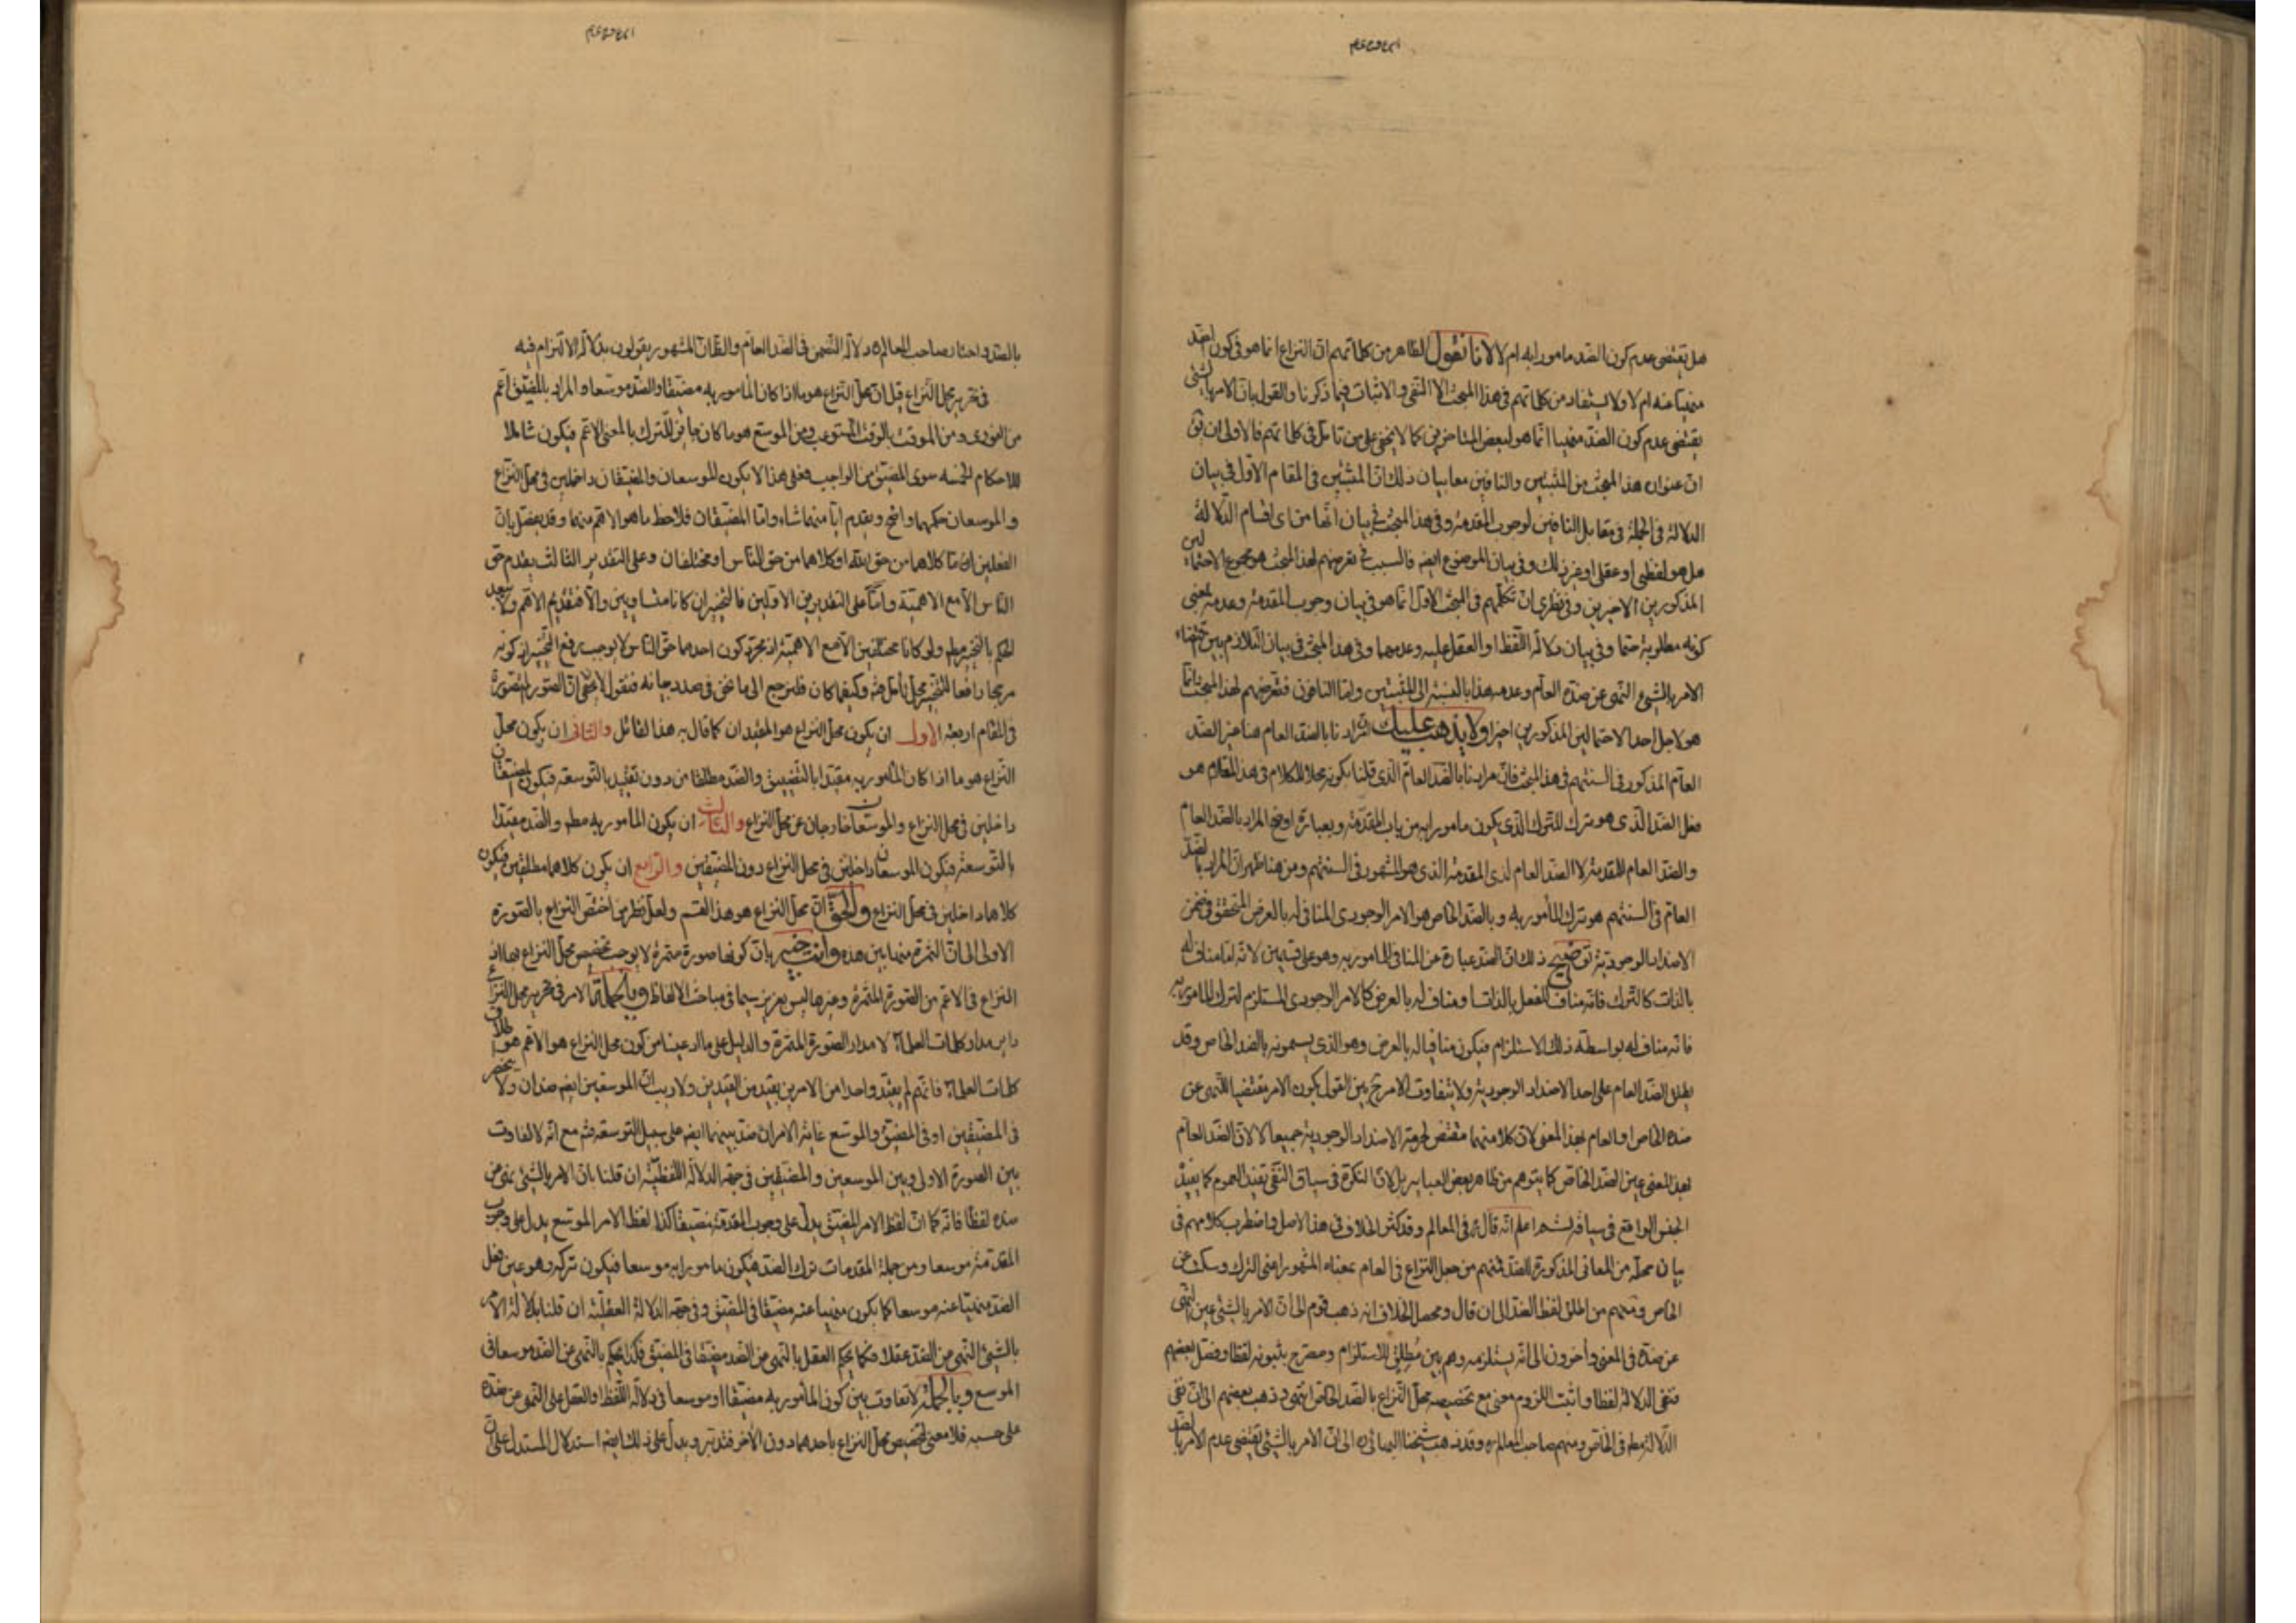 هل يقتضى عدم كون الضد مامورا به ام لا لانا نقول الظاهر من كلماتهم ان النزاع انما هو فى كون الضد
منهيا عنه ام لا ولا يستفاد من كلماتهم فى هذا المبحث الا النفى والاثبات فيما ذكرنا والقول بان الامر بالشئ
يقتضى عدم كون الضد منهيا انما هو لبعض المتاخرين كما لا يخفى على من تامل فى كلماتهم فالاولى ان يق
ان عنوان هذا المبحث من المثبتين والنافين معا بيان ذلك ان المثبتين فى المقام الاول فى بيان
الدلالة فى الجملة فى مقابل النافين لوجوب المقدمة وفى هذا المبحث فى بيان انها من اى اقسام الدلالة
هل هو لفظى او عقلى او غير ذلك وفى بيان الموضوع ايضه فالسبب فى تعرضهم لهذا المبحث هو مجموع الاحتمالين
المذكورين الاخيرين وفى نظرى ان تكلمهم فى المبحث الاول انما هو فى بيان وجوب المقدمة وعدمه بمعنى
كونه مطلوبة حتما وفى بيان دلالة اللفظ او العقل عليه وعدمهما وفى هذا المبحث فى بيان التلازم بين اقتضاء
الامر بالشئ النهى عن ضده العام وعدمه هذا بالنسبة الى المثبتين واما النافون فتعرضهم لهذا المبحث انما
هو لاجل احد الاحتمالين المذكورين اخيرا ولا يذهب عليك ان مرادنا بالضد العام هنا غير الضد
العام المذكور فى السنتهم فى هذا المبحث فان مرادنا بالضد العام الذى قلنا بكونه محلا للكلام فى هذا المقام هو
فعل الضد الذى هو ترك للترك الذى يكون مامورا به من باب المقدمة وبعبارة اوضح المراد بالضد العام
والضد العام للمقدمة لا الضد العام لذى المقدمة الذى هو المشهور فى السنتهم ومن هنا ظهر ان المراد بالضد
العام فى السنتهم هو ترك المأمور به وبالضد الخاص هو الامر الوجودى المنافى له بالعرض المتحقق فى ضمن
الاضداد الوجودية توضيح ذلك ان الضد عبارة عن المنافى للمامور به وهو على قسمين لانه اما مناف له
بالذات كالترك فانه مناف للفعل بالذات او مناف له بالعرض كالامر الوجودى المستلزم لترك المامور به
فانه مناف له بواسطة ذلك الاستلزام فيكون منافيا له بالعرض وهو الذى يسمونه بالضد الخاص وقد
يطلق الضد العام على احد الاضداد الوجودية ولا يتفاوت الامر ح بين القول بكون الامر مقتضيا للنهى عن
ضده الخاص او العام بهذا المعنى لان كلا منهما مقتض لحرمة الاضداد الوجودية جميعا لا لان الضد العام
بهذا المعنى عين الضد الخاص كما يتوهم من ظاهر بعض العباير بل لان النكرة فى سياق النفى تفيد العموم كما يفيد
الجنس الواقع فى سياقه اعلم انه قال فى المعالم وقد كثر الخلاف فى هذا الاصل واضطرب كلامهم فى
بيان محله من المعانى المذكورة للضد فمنهم من جعل النزاع فى العام بمعناه المشهور اعنى الترك وسكت عن
الخاص ومنهم من اطلق لفظ الضد الى ان قال ومحصل الخلاف انه ذهب قوم الى ان الامر بالشئ عين النهى
عن ضده فى المعنى وآخرون الى انه يستلزمه وهم بين مطلق للاستلزام ومصرح بثبوته لفظا وفصل بعضهم
فنفى الدلالة لفظا واثبت اللزوم معنى مع تخصيصه محل النزاع بالضد الخاص انتهى وذهب بعضهم الى ان نفى
الدلالة مطه فى الخاص ومنهم صاحب المعالم ره وقد ذهب شيخنا البهائى ره الى ان الامر بالشئ يقتضى عدم الامر بالضد
بالضد واختار صاحب المعالم ره دلالة التضمن فى الضد العام والظان المشهور يقولون بدلالة الالتزام فيه
فى تحرير محل النزاع قيل ان محل النزاع هو ما اذا كان المأمور به مضيقا والضد موسعا والمراد بالمضيق اعم
من الفورى ومن الموقت بالوقت المستوعب ومن الموسع هو ما كان جايز الترك بالمعنى الاعم فيكون شاملا
للاحكام الخمسه سوى المضيق من الواجب فعلى هذا لا يكون الموسعان والمضيقان داخلين فى محل النزاع
والموسعان حكمهما واضح ويقدم ايا منهما شاء واما المضيقان فلاحظ ما هو الاهم منهما وقد يفصل بان
الفعلين اما كلاهما من حق الله او كلاهما من حق الناس او مختلفان وعلى التقدير الثالث يقدم حق
الناس الا مع الاهمية واما على التقديرين الاولين فالتخيير ان كانا متساويين والا فتقديم الاهم ولا يبعد
الحكم بالتخيير مطه ولو كانا مختلفين الا مع الاهمية اذ مجرد كون احدهما حق الناس لا يوجب رفع التخيير اذ كونه
مرجحا رافعا للتخيير محل تأمل فته وكيفما كان فلنرجع الى ما نحن فى صدد بيانه فنقول لا يخفى ان الصور المتصورة
فى المقام اربعة الاول ان يكون محل النزاع هو المقيدان كما قال به هذا القائل والثانى ان يكون محل
النزاع هو ما اذا كان المأمور به مقيدا بالتضييق والضد مطلقا من دون تقييد بالتوسعة فيكون المضيقان
داخلين فى محل النزاع والموسعان خارجان عن محل النزاع والثالث ان يكون المأمور به مطه والضد مقيدا
بالتوسعة فيكون الموسعان داخلين فى محل النزاع دون المضيقين والرابع ان يكون كلاهما مطلقين فيكون
كلاهما داخلين فى محل النزاع والحق ان محل النزاع هو هذا القسم ولعل نظر من اختص النزاع بالصورة
الاولى الى ان الثمرة منها بين هذه وانت خبير بان كونها صورة مثمرة لا يوجب تخصيص محل النزاع بها اذ
النزاع فى الاعم من الصورة المثمرة وغيرها ليس بعزيز سيما فى مباحث الالفاظ وبالجملة الامر فى تحرير محل النزاع
داير مدار كلمات العلماء لا مدار الصورة المثمرة والدليل على ما ادعينا من كون محل النزاع هو الاعم هو اطلاق
كلمات العلماء فانهم لم يقيدوا واحدا من الامرين بقيد من القيدين ولا ريب ان الموسعين ايضه ضدان ولا ينحصر
فى المضيقين او فى المضيق والموسع غاية الامر ان ضد بينهما ايضه على سبيل التوسعة فته مع انه لا تفاوت
بين الصورة الاولى وبين الموسعين والمضيقين فى جهة الدلالة اللفظية ان قلنا بان الامر بالشئ نهى عن
ضده لفظا فانه كما ان لفظ الامر المضيق يدل على وجوب المقدمة مضيقا كذا لفظ الامر الموسع يدل على وجوب
المقدمة موسعا ومن جملة المقدمات ترك الضد فيكون مامورا به موسعا فيكون تركه وهو عين فعل
الضد منهيا عنه موسعا كما يكون منهيا عنه مضيقا فى المضيق وفى جهة الدلالة العقلية ان قلنا بدلالة الامر
بالشئ النهى عن الضد عقلا فكما يحكم العقل بالنهى عن الضد مضيقا فى المضيق فكذا يحكم بالنهى عن الضد موسعا فى
الموسع وبالجملة لا تفاوت بين كون المأمور به مضيقا او موسعا فى دلالة اللفظ او العقل على النهى عن ضده
على حسبه فلا معنى لتخصيص محل النزاع باحدهما دون الآخر فتدبر ويدل على ذلك ايضه استدلال المستدل على ان